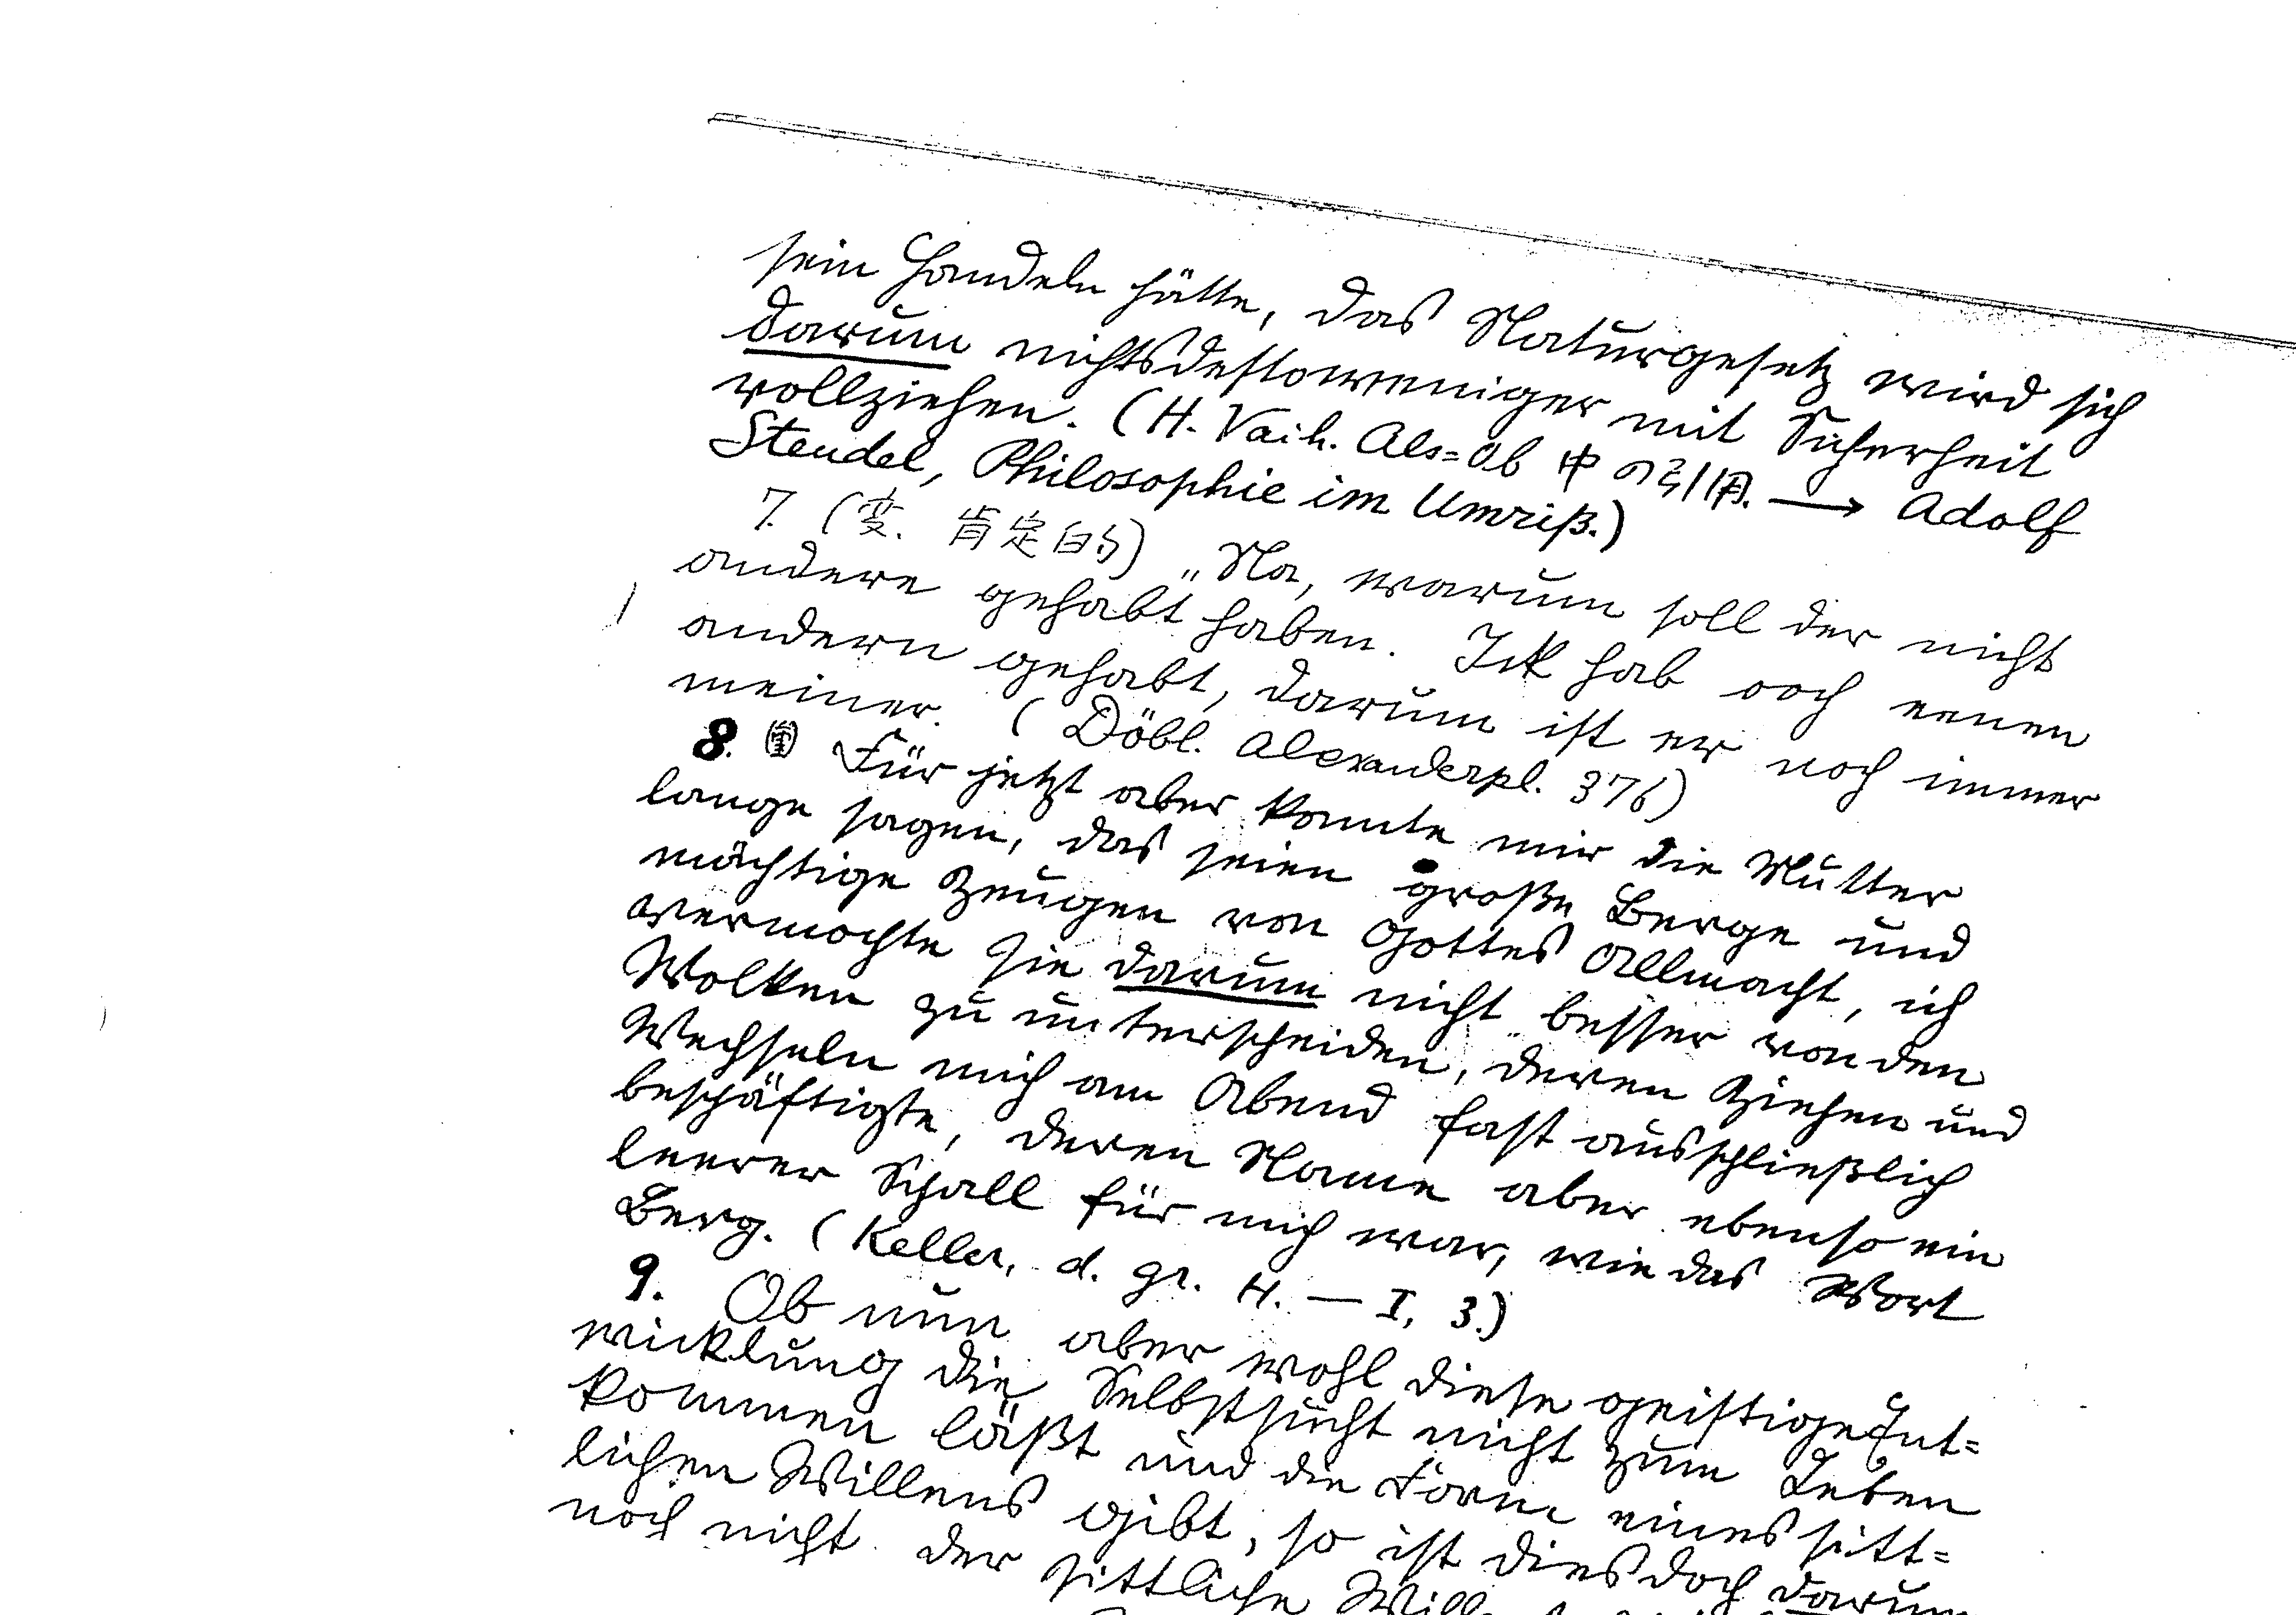 sein Handeln hätte, das Naturgesetz wird sich
darum nichtsdestoweniger mit Sicherheit
vollziehen. (H. Vaih. Als=Ob 中の引用. → Adolf
Steudel, Philosophie im Umriß.)
7. (変. 肯定的) „Na, warum soll der nicht
andere gehabt haben. Ick hab ooch eenen
andern gehabt, darum ist er noch immer
meiner. (Döbl. Alexanderpl. 376)
8. Für jetzt aber konnte mir die Mutter
lange sagen, das seien große Berge und
mächtige Zeugen von Gottes Allmacht, ich
vermochte sie darum nicht besser von den
Wolken zu unterscheiden, deren Ziehen und
Wechseln mich am Abend fast ausschließlich
beschäftigte, deren Name aber ebenso ein
leerer Schall für mich war, wie das Wort
Berg. (Keller, d. gr. H. — I, 3.)
9. Ob nun aber wohl diese geistige Ent=
wicklung die Selbstsucht nicht zum Leben
kommen läßt und die Form eines sitt=
lichen Willens gibt, so ist dies doch darum
noch nicht der sittliche